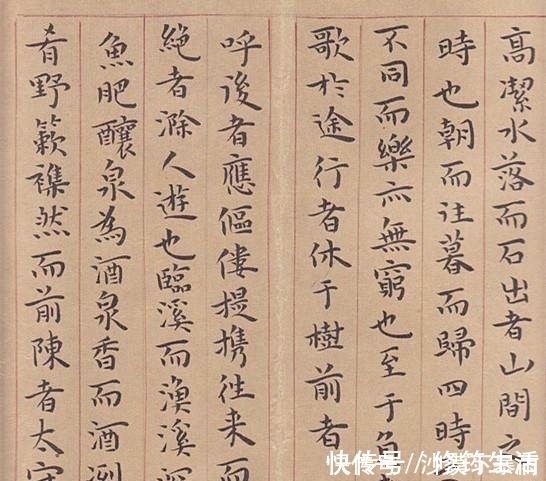 高潔水落而石出者山間之
時也朝而往暮而歸四時
不同而樂亦無窮也至于負
歌於途行者休于樹前者
呼後者應傴僂提携往来而
絕者滁人遊也臨溪而漁溪
魚肥釀泉為酒泉香而酒洌
肴野蔌襍然而前陳者太守
快传号//